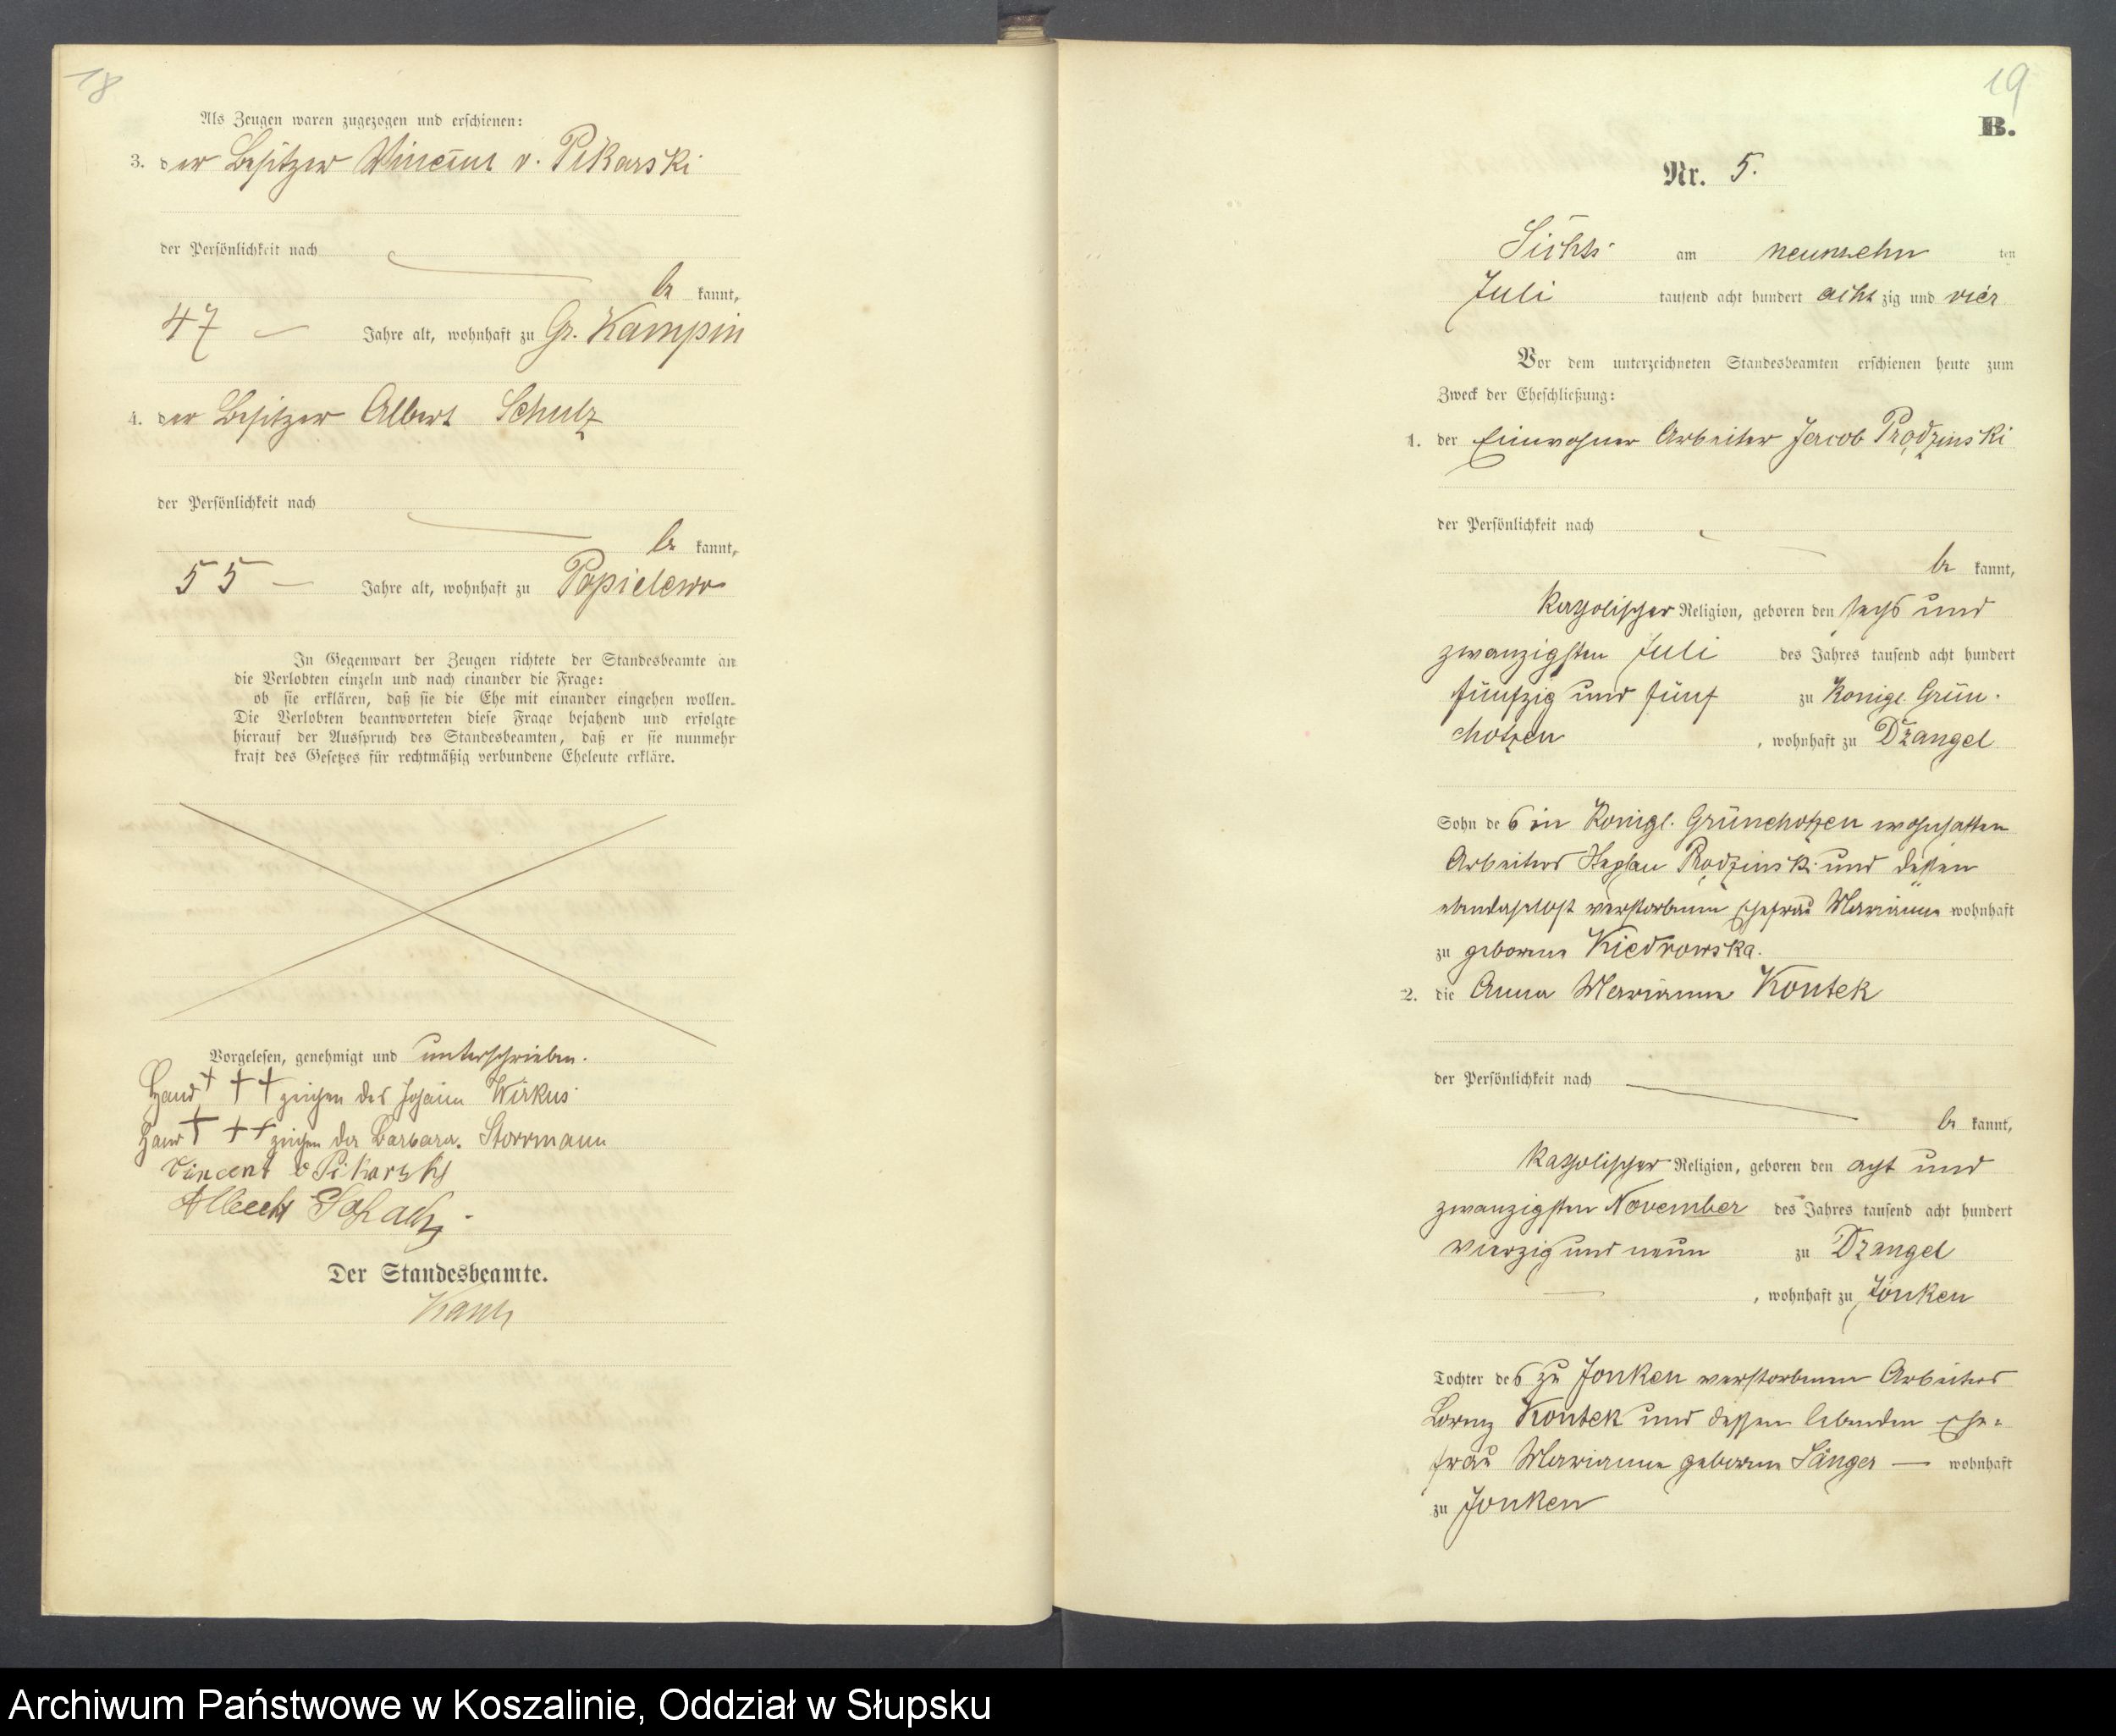 18
Als Zeugen waren zugezogen und erschienen:
3. der Besitzer Vincent v. Pikarski
der Persönlichkeit nach
be kannt,
47 — Jahre alt, wohnhaft zu Gr. Kampin
4. der Besitzer Albert Schulz
der Persönlichkeit nach
be kannt,
55 — Jahre alt, wohnhaft zu Popielewo
In Gegenwart der Zeugen richtete der Standesbeamte an
die Verlobten einzeln und nach einander die Frage:
ob sie erklären, daß sie die Ehe mit einander eingehen wollen.
Die Verlobten beantworteten diese Frage bejahend und erfolgte
hierauf der Ausspruch des Standesbeamten, daß er sie nunmehr
kraft des Gesetzes für rechtmäßig verbundene Eheleute erkläre.
Vorgelesen, genehmigt und unterschrieben.
Hand +++ zeichen des Johann Wirkus
Hand +++ zeichen der Barbara Storrmann
Vincent v Pikarsky
Albecht
Der Standesbeamte.
19
B.
Nr. 5.
am neunzehn ten
Juli tausend acht hundert acht zig und vier
Vor dem unterzeichneten Standesbeamten erschienen heute zum
Zweck der Eheschließung:
1. der Einwohner Arbeiter Jacob Prądzinski
der Persönlichkeit nach
be kannt,
katholischer Religion, geboren den sechs und
zwanzigsten Juli des Jahres tausend acht hundert
fünfzig und fünf zu Konigl. Grün-
chotzen, wohnhaft zu Dzangel
Sohn des in Konigl. Grünchotzen wohnhaften
Arbeiters Prądzinski und dessen
ebendaselbst verstorbenen Ehefrau Marianna wohnhaft
zu geborene Kiedrowska.
2. die Anna Marianna Kontek
der Persönlichkeit nach
be kannt,
katholischer Religion, geboren den acht und
zwanzigsten November des Jahres tausend acht hundert
vierzig und neun zu Dzangel
, wohnhaft zu Jonken
Tochter des zu Jonken verstorbenen Arbeiters
Lorenz Kontek und dessen lebenden Ehe-
frau Marianna geborene Sänger — wohnhaft
zu Jonken
Archiwum Państwowe w Koszalinie, Oddział w Słupsku